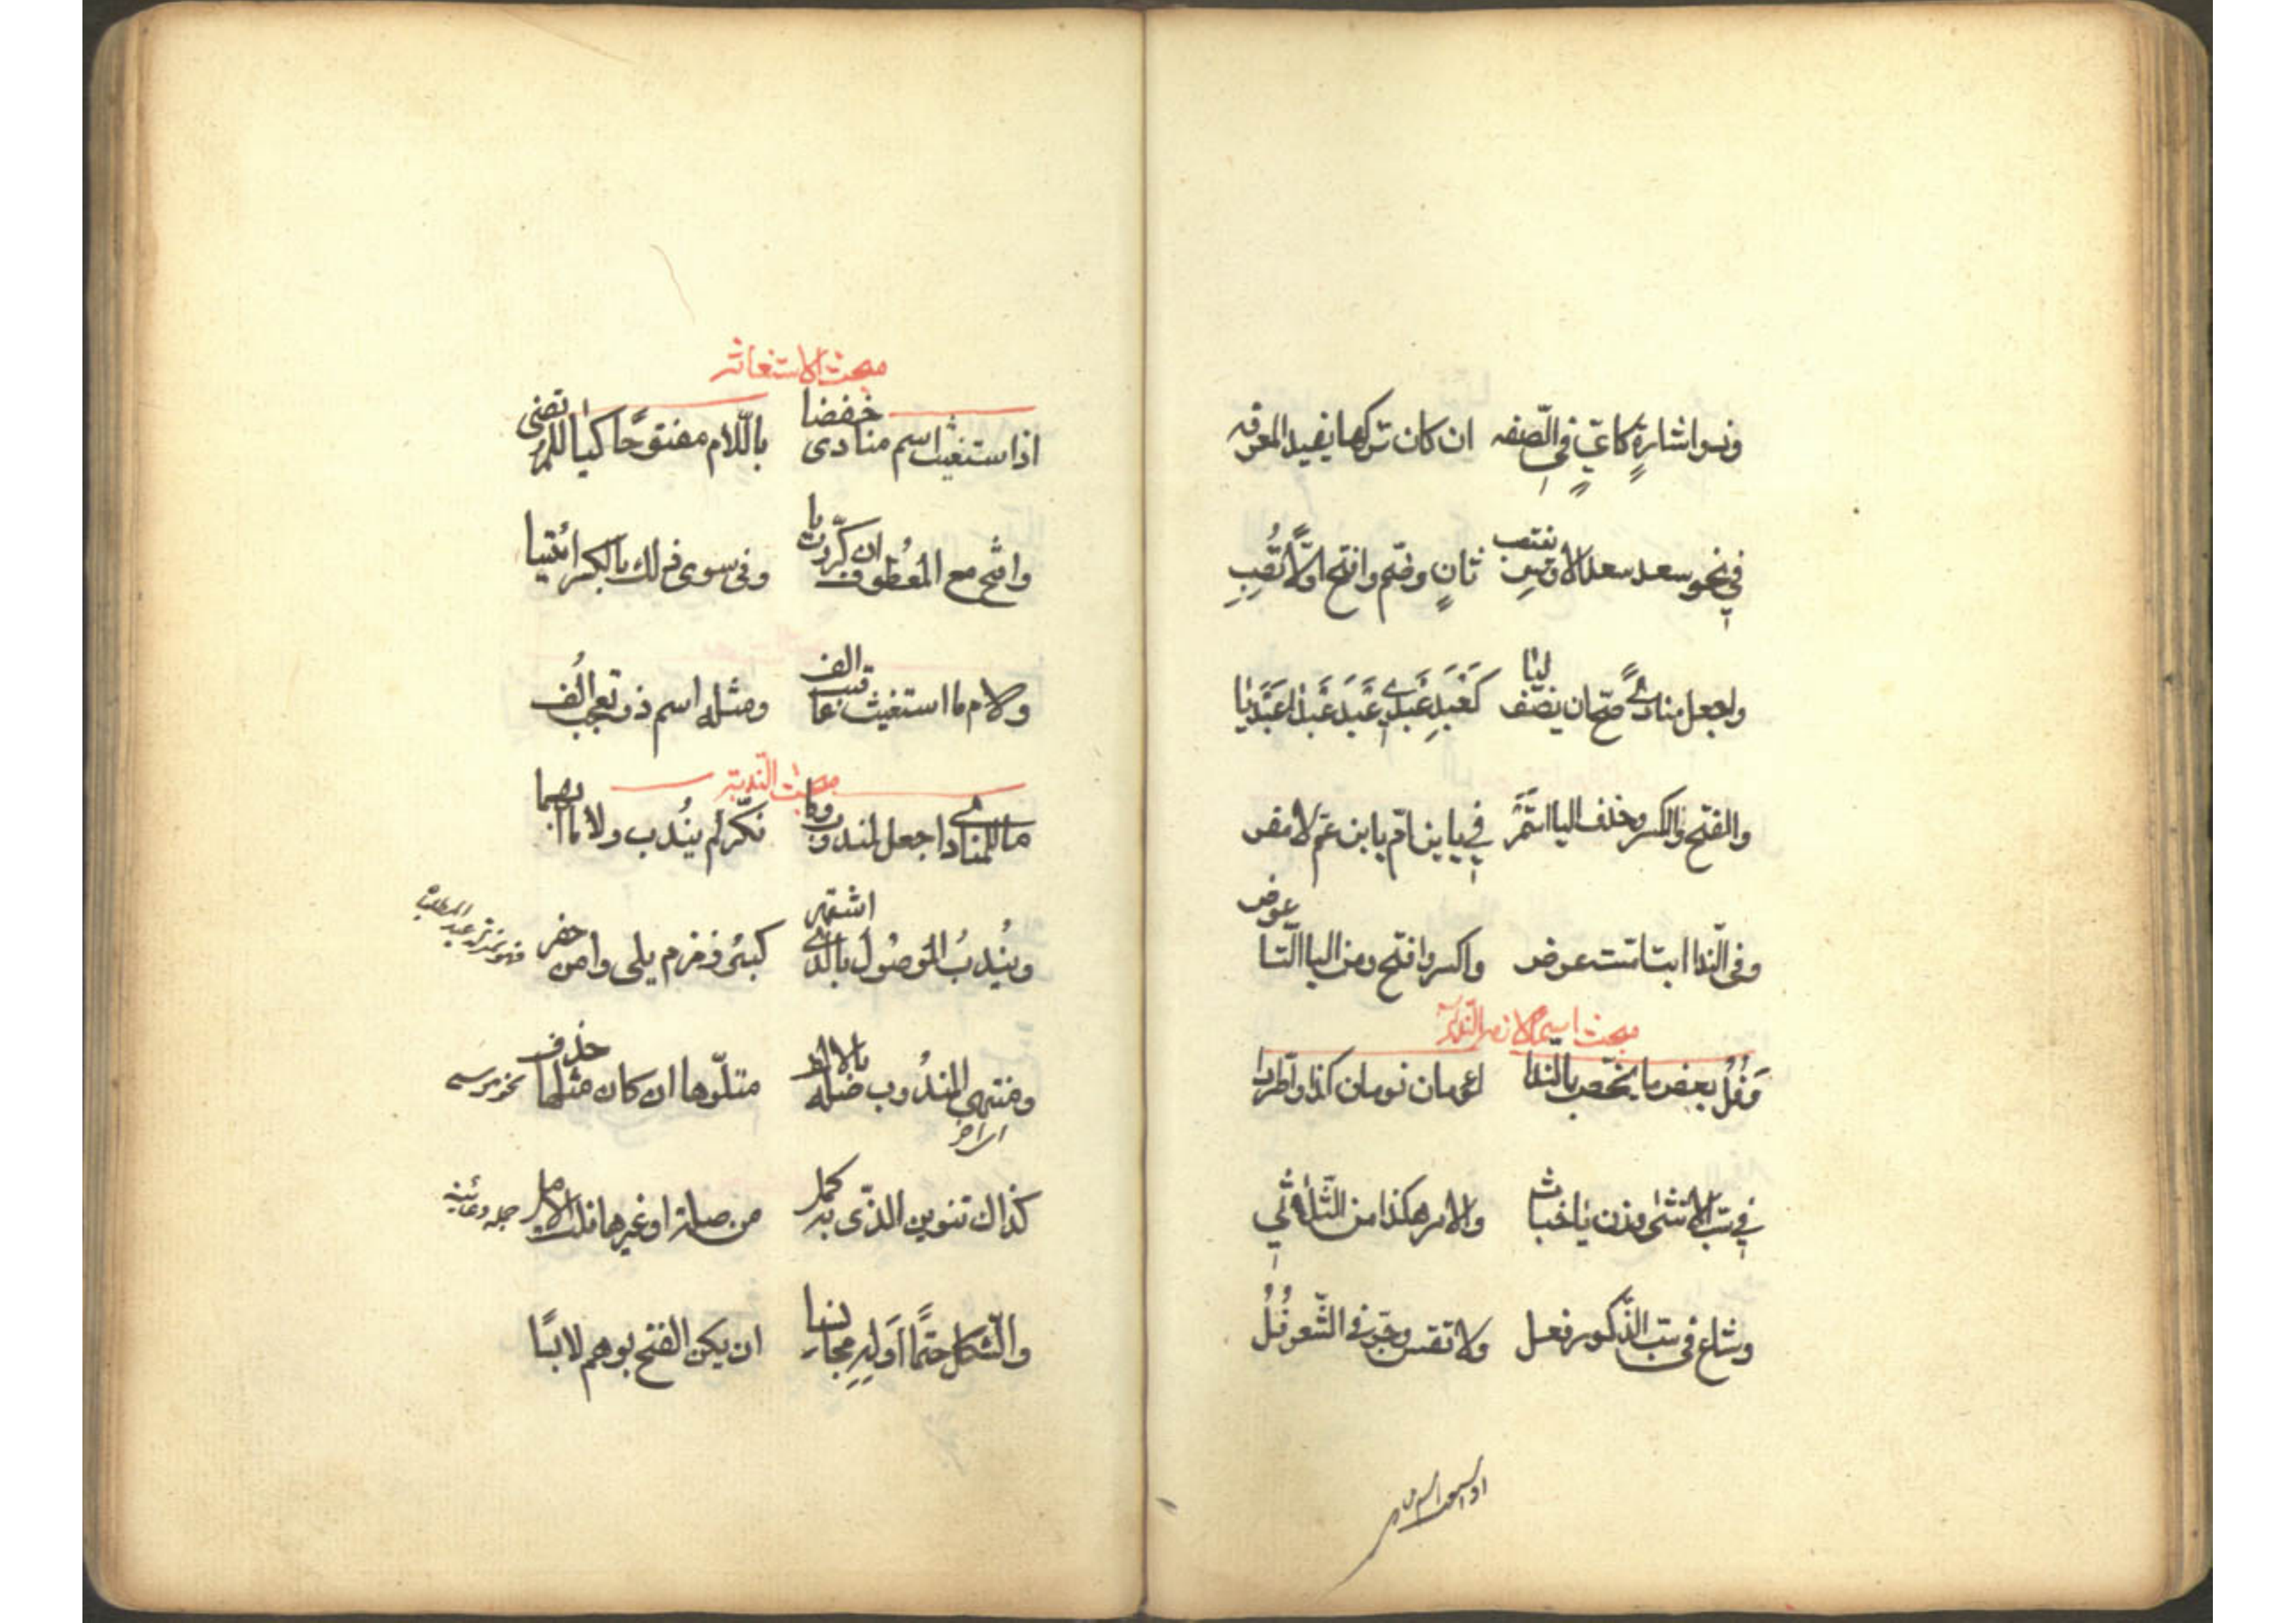 وذو اشارة كاي في الصفه ان كان تركها يفيد المعرفه
في نحو سعد سعد الاوس ينتصب ثان وضم وافتح اولا تصب
واجعل منادى صح ان يضف ليا كعبد عبدي عبد عبدا عبديا
والفتح والكسر وحذف اليا استمر في يا ابن ام يا ابن عم لا مفر
وفى الندا ابت امت عرض واكسر وافتح ومن اليا التا عوض
مبحث اسماء لازمت النداء
وفل بعض ما يخص بالندا لؤمان نومان كذا واطردا
في سب الانثى وزن يا خباث والامر هكذا من الثلاثي
وشاع فى سب الذكور فعل ولا تقس وجر فى الشعر فل
اذا استغيث اسم
مبحث الاستغاثه
اذا استغيث اسم منادى خفضا باللام مفتوحا كيا للمرتضى
وافتح مع المعطوف ان كررت يا وفى سوى ذلك بالكسر ائتيا
ولام ما استغيث عاقبت الف ومثله اسم ذو تعجب الف
مبحث الندبة
ما للمنادى اجعل لمندوب وما نكر لم يندب ولا ما ابهما
ويندب الموصول بالذي اشتهر كبئر زمزم يلى وا من حفر
ومنتهى المندوب صله بالالف متلوها ان كان مثلها حذف نحو موسى
كذاك تنوين الذى به كمل من صلة او غيرها نلت الامل
والشكل حتما اوله مجانسا ان يكن الفتح بوهم لابسا